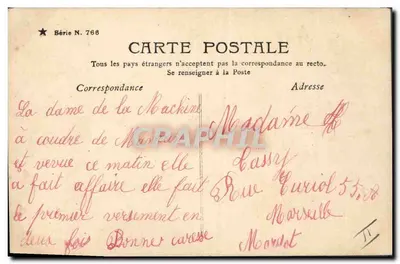 ★ Série N. 766
CARTE POSTALE
Tous les pays étrangers n'acceptent pas la correspondance au recto.
Se renseigner à la Poste
Correspondance
Adresse
La dame de la Machine
à coudre de
et venue ce matin elle
a fait affaire elle fait
le premier versement en
deux fois Bonne caresse
Madame
Cassy
Rue Turiol 55
Marseille